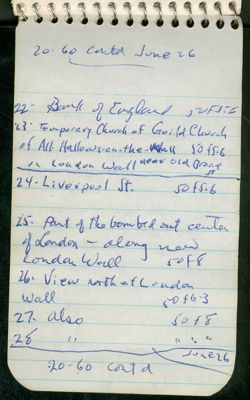 20-60 contd June 26
22- Bank of England 50 f5.6
23- Temporary Church of Guild Church
of All Hallows-on-the-Wall 50 f5.6
in London Wall near Old Broad
St
24- Liverpool St. 50 f5.6
25. Part of the bombed out center
of London - along new
London Wall 50 f8
26. View north of London
Wall 50 f6.3
27. Also 50 f8
28 " " " "
June 26
20-60 contd